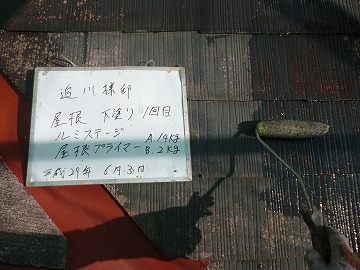 追川様邸
屋根 下塗り 1回目
ルミステージ A.14kg
屋根プライマー B.2kg
平成29年 6月3日